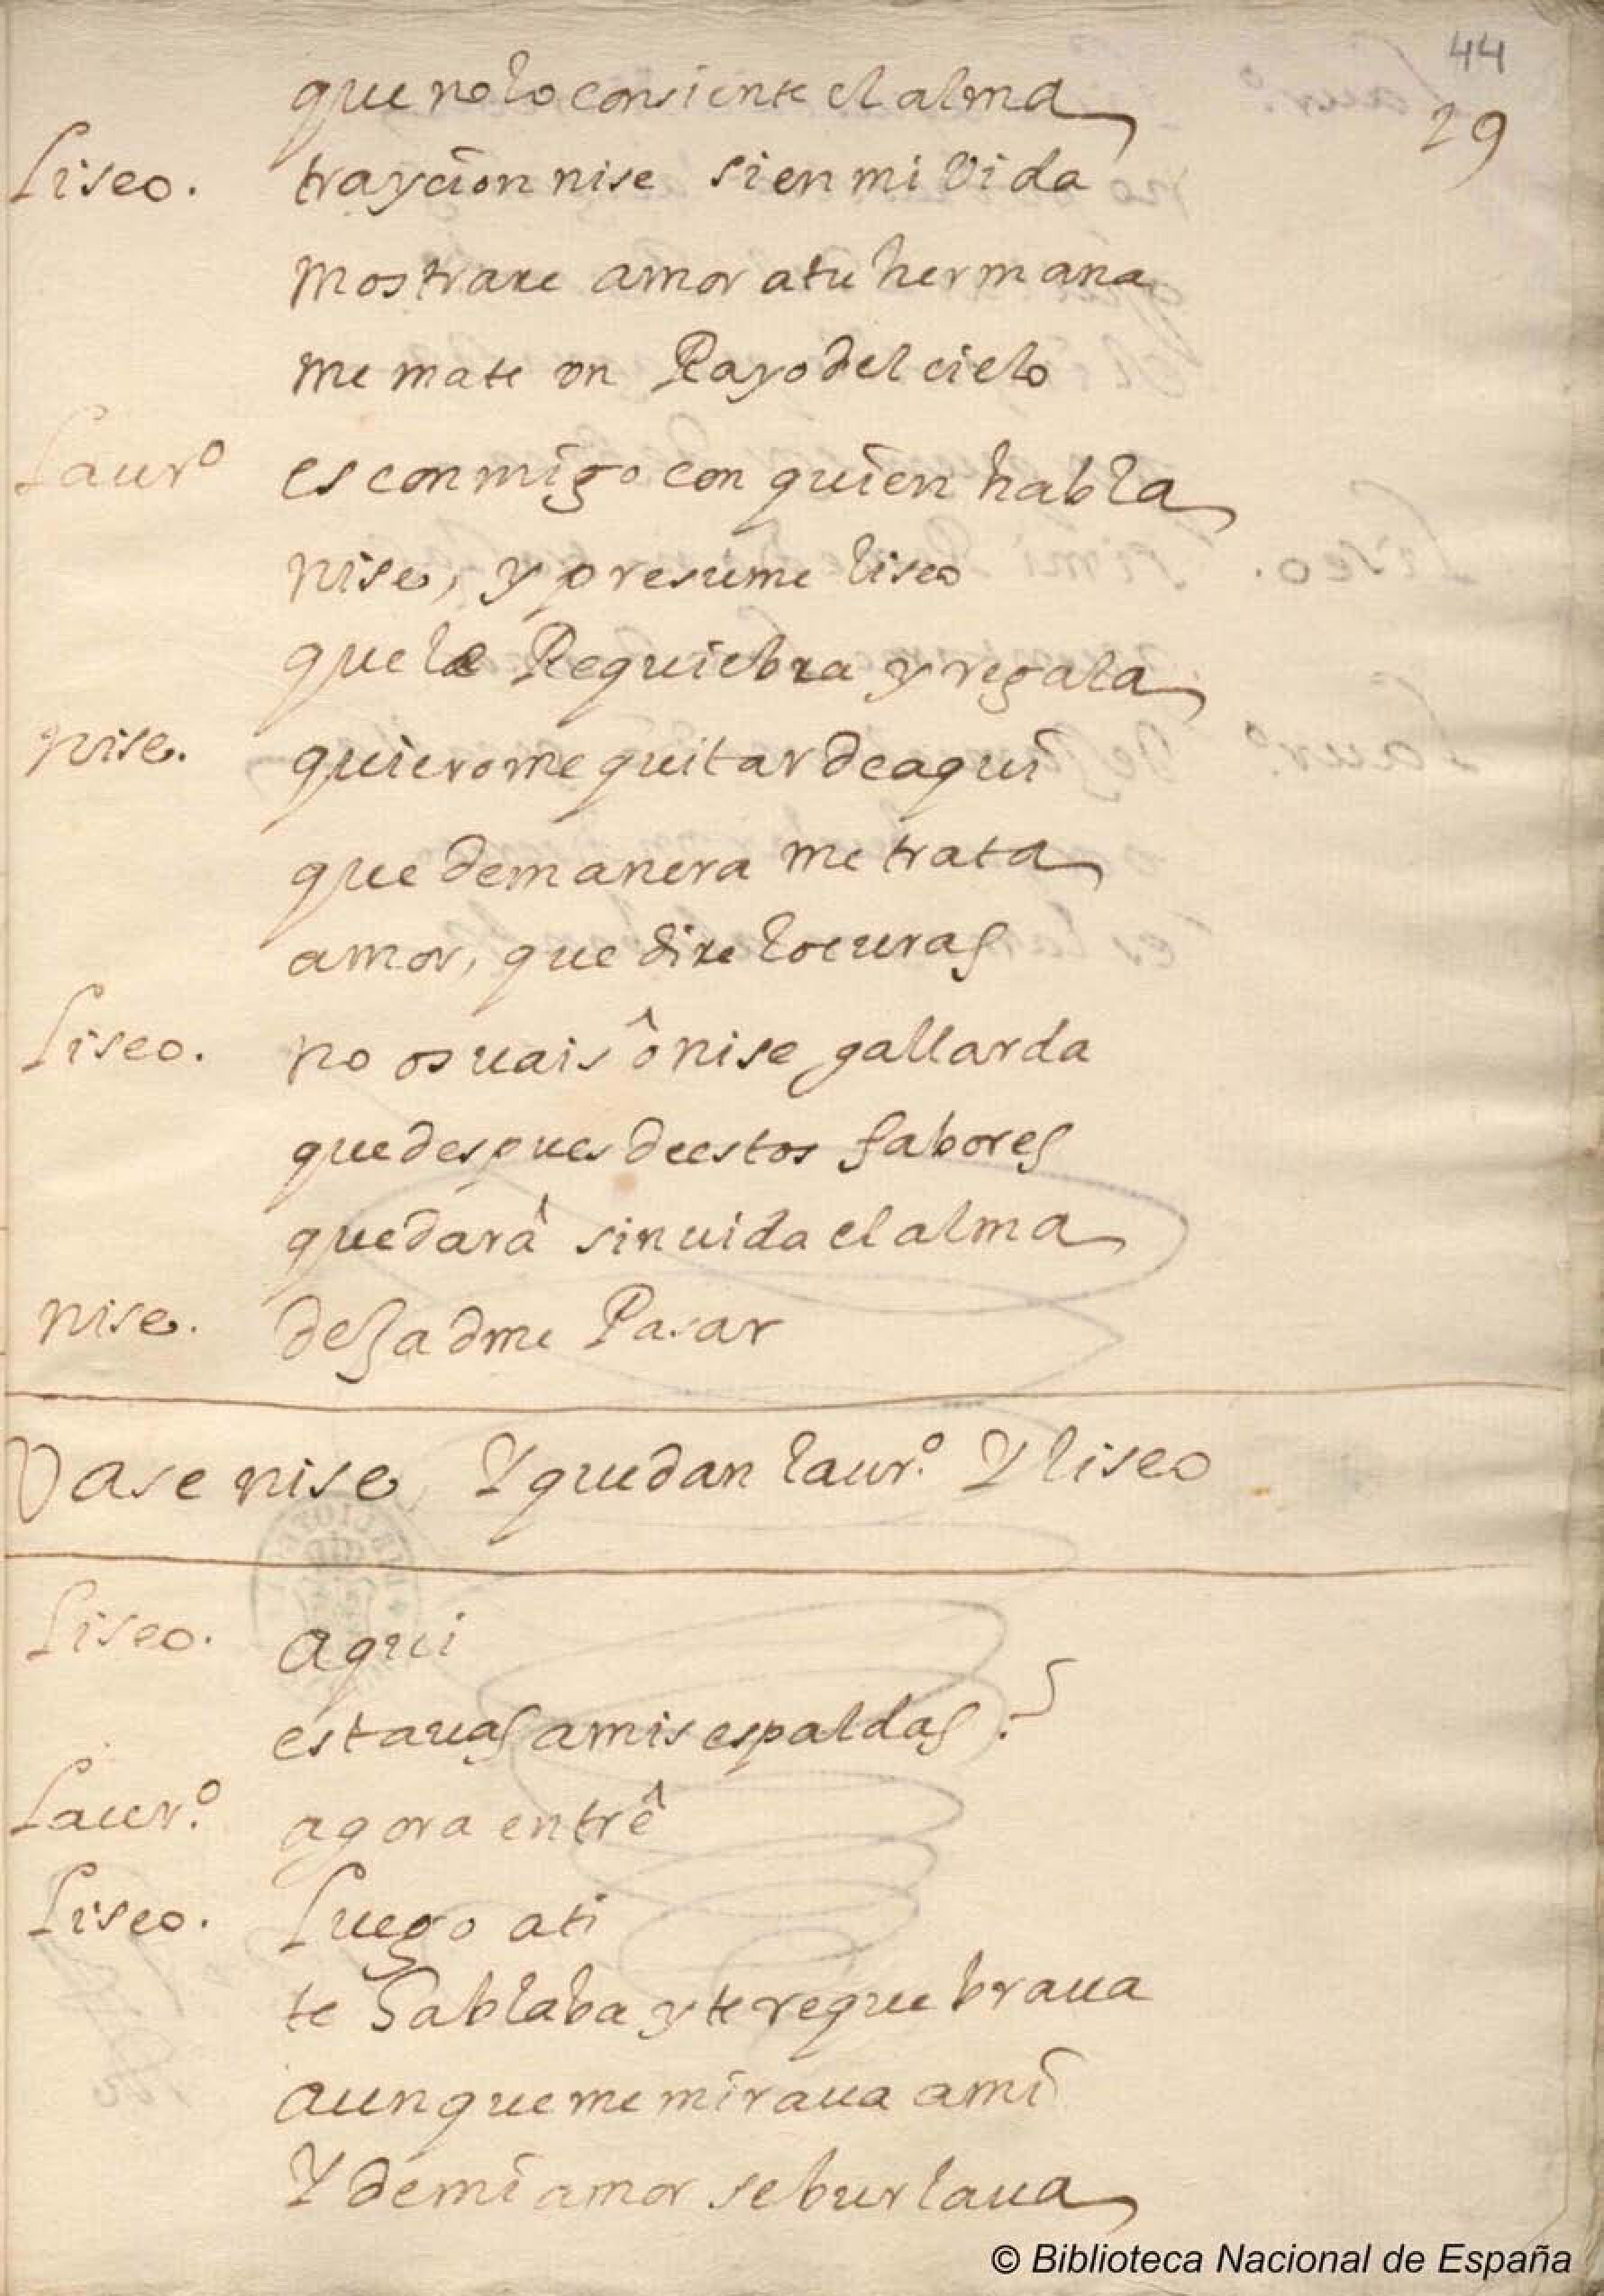 44
29
que no lo consiente el alma
Liseo. trayçion nise si en mi vida
mostrare amor a tu hermana
me mate vn Rayo del cielo
Laurº es conmigo con quien habla
nise, y presume liseo
que la Requiebra y regala
nise. quierome quitar de aqui
que de manera me trata
amor, que dire locuras
Liseo. no os uais ô nise gallarda
que despues de estos fabores
quedarâ sin uida el alma
nise. dejadme Pasar
Vase nise, Y quedan laur.º Y liseo
Liseo. aqui
estauas a mis espaldas?
Laur.º agora entrê
Liseo. Luego a ti
te hablaba y te requebraua
aunque me miraua a mi
Y de mi amor se burlaua
© Biblioteca Nacional de España